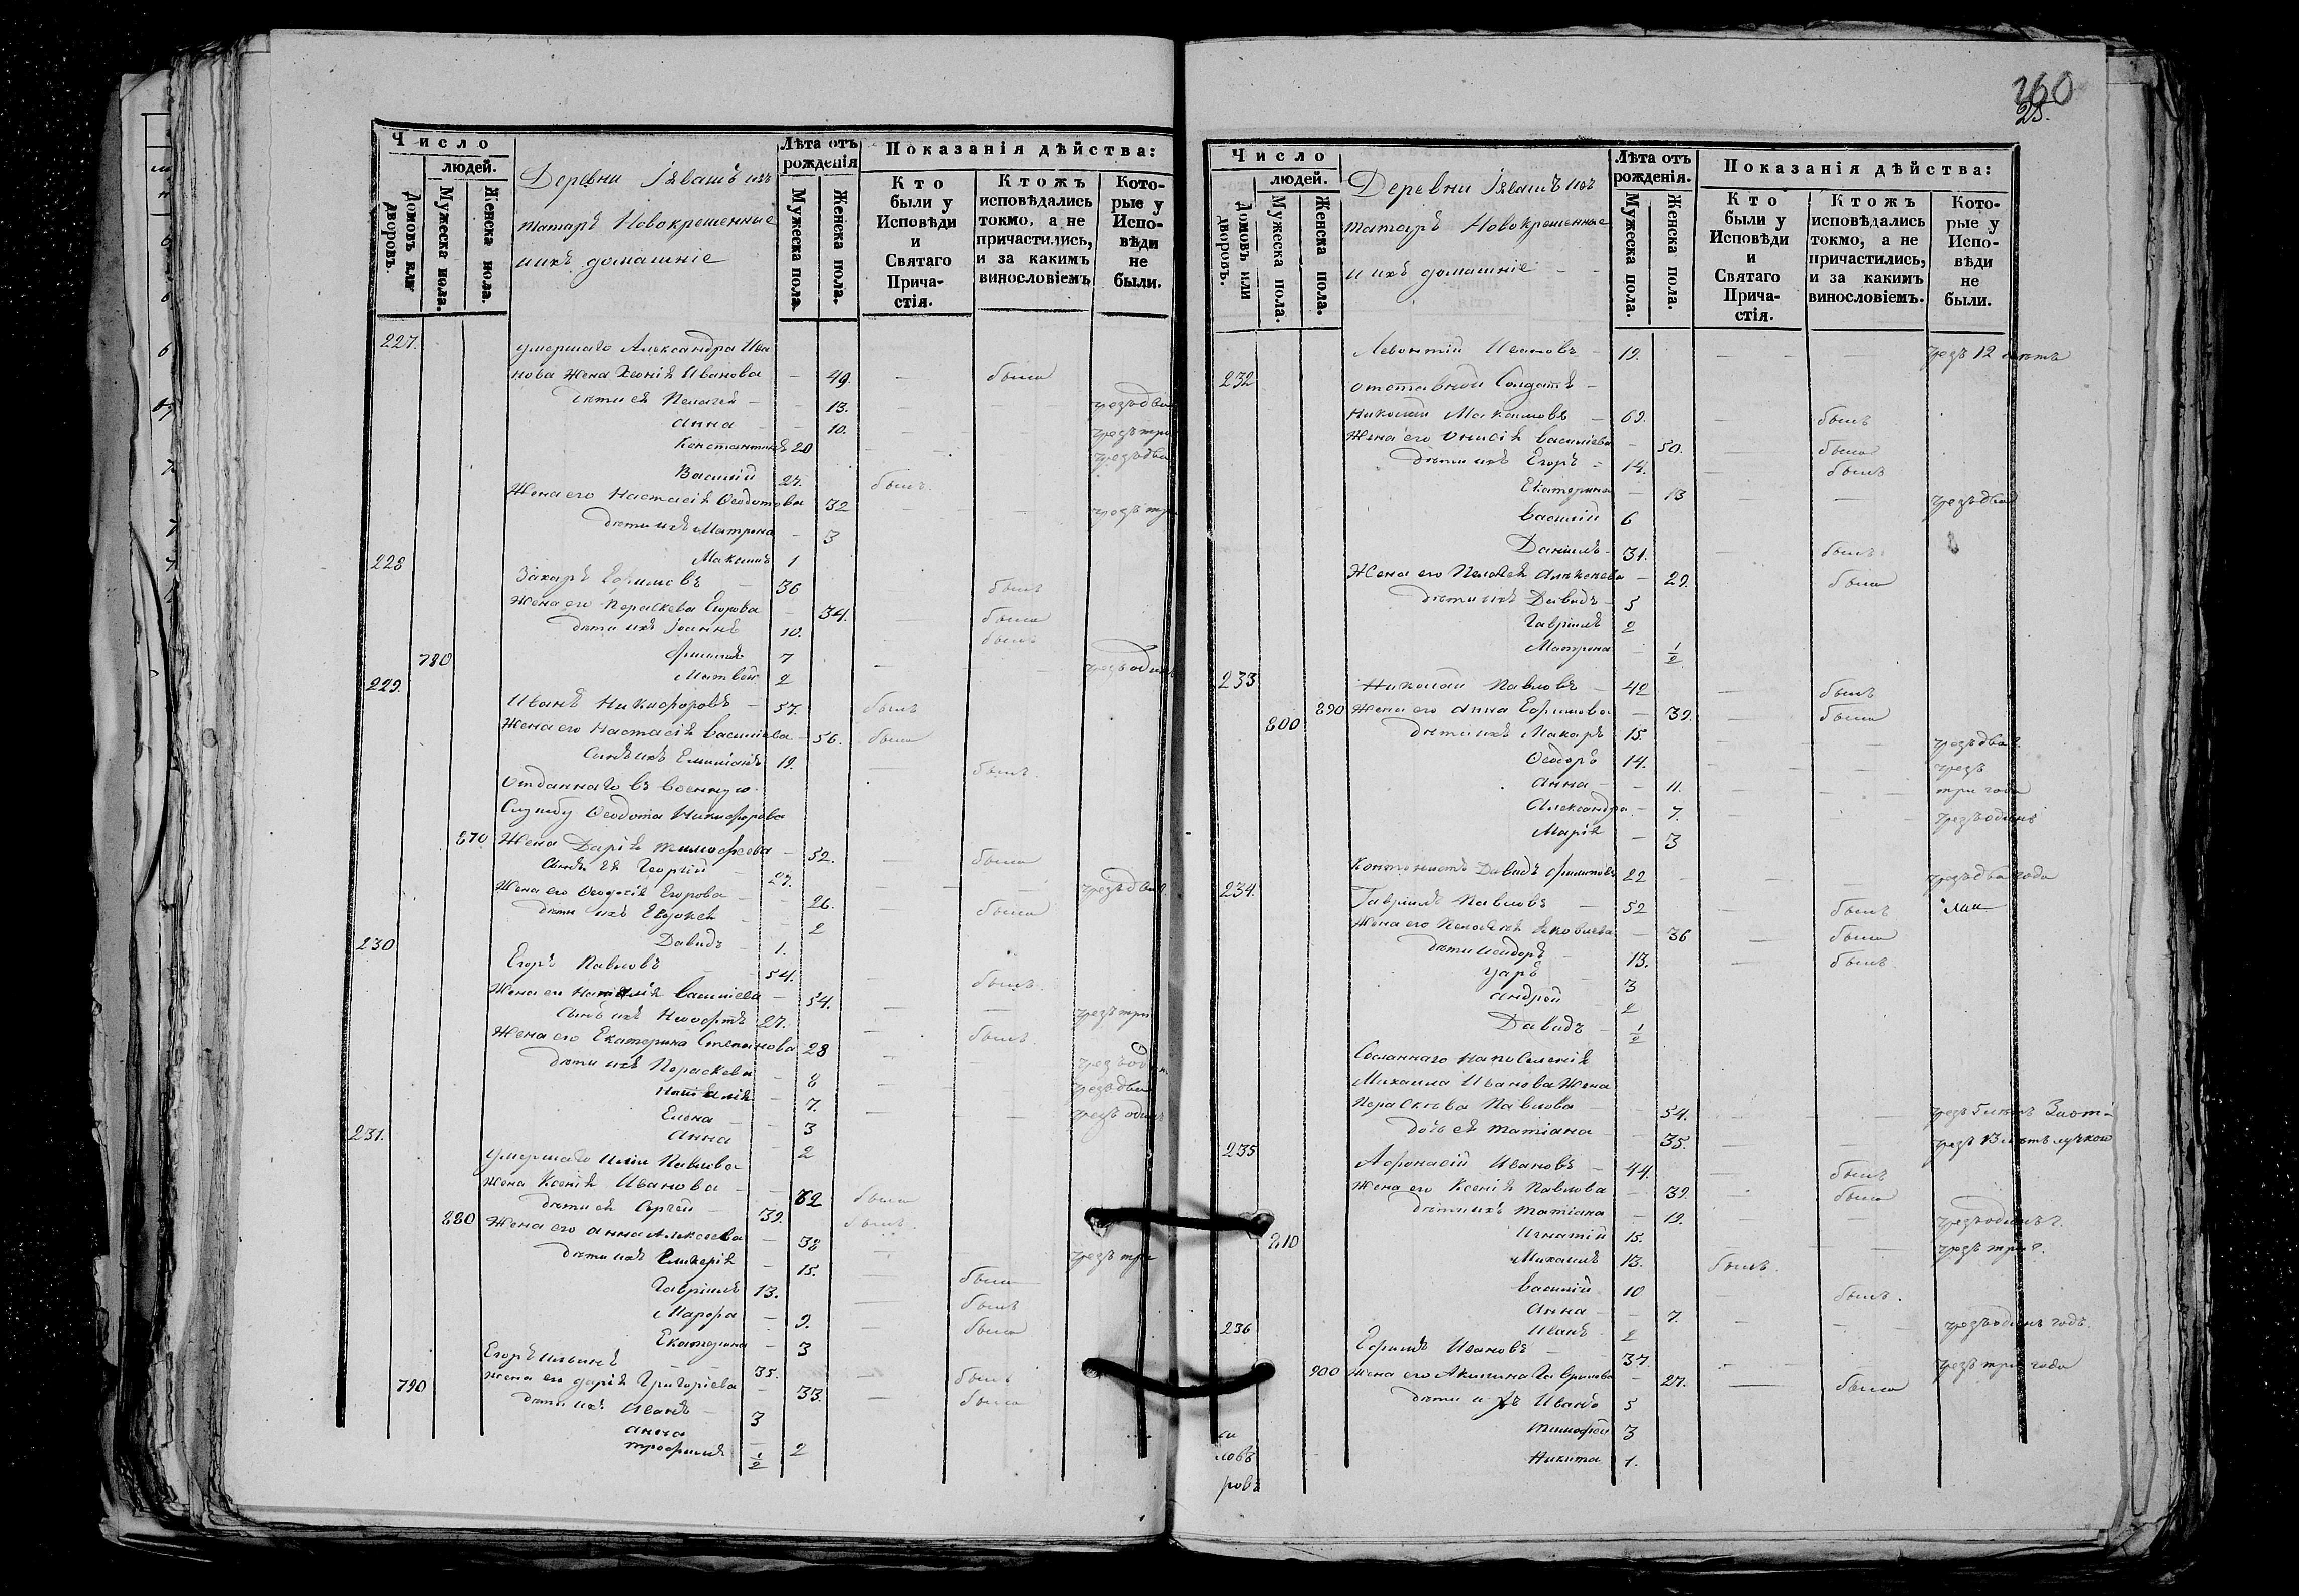 Число
людей.
Домовъ или дворовъ.
Мужеска пола.
Женска пола.
Деревни
татаръ Новокрещенные
и ихъ домашніе
Лѣта отъ рожденія
Мужеска пола.
Женска пола.
Показанія дѣйства:
Кто были у Исповѣди и Святаго Причастія.
Ктожъ исповѣдались токмо, а не причастились, и за какимъ винословіемъ
Которые у Исповѣди не были.
227. умершаго Александра Ива
нова жена Иванова - 49. - была
дѣти ея Пелагея - 13. - - чрезъ два
Анна - 10. - - чрезъ три
Константинъ 20 - - чрезъ два
Василій 27. былъ.
Жена его Настасія Ѳеодотова 32 - - чрезъ три
дѣти ихъ Матрона - 3
Максимъ 1
228 Захаръ Ефимовъ - 36 былъ
Жена его Параскева Егорова - 34. - была
дѣти ихъ Іоаннъ 10. былъ
780 Филиппъ 7 - - чрезъ одинъ
Матвей 2
229. Иванъ Никифоровъ - 57. былъ
Жена его Настасія Василіева - 56. была
Сынъ ихъ Емиліанъ 19. - былъ.
Отданнаго въ военную
Службу Ѳеодота Никифорова
870 Жена Дарія Тимофеева - 52. - была
Сынъ ея Георгій - 27. - - чрезъ два г.
Жена его Ѳеодосія Егорова - 26. - была
дѣти ихъ Евдокея - 2
Давидъ - 1.
230 Егоръ Павловъ 54. - былъ.
Жена его Наталія Василіева - 54. - - чрезъ три
Сынъ ихъ 27. - былъ
Жена его Екатерина Степанова 28 - чрезъ од
дѣти ихъ Параскева - 8 - - чрезъ два
Наталія - 7. - - чрезъ одинъ
Елена - 3
Анна - 2
231. умершаго Иліи Павлова
жена Ксенія Иванова - 62 была
дѣти ея Сергей - 39. былъ.
880 Жена его Анна Алексеева - 38 - - чрезъ три
дѣти ихъ Гликерія - 15. - была
Гавріилъ 13. - былъ
Марфа - 9. - была
Екатерина - 3
Егоръ Ильинъ 35. - былъ
790 жена его Дарія Григоріева - 33. - была
дѣти ихъ Иванъ - 3
Анна - 2
Трофимъ ½
260
25.
Число
людей.
Домовъ или дворовъ.
Мужеска пола.
Женска пола.
Деревни
татаръ Новокрещенные
и ихъ домашніе
Лѣта отъ рожденія.
Мужеска пола.
Женска пола.
Показанія дѣйства:
Кто были у Исповѣди и Святаго Причастія.
Ктожъ исповѣдались токмо, а не причастились, и за какимъ винословіемъ.
Которые у Исповѣди не были.
Левонтій Ивановъ - 19. - - чрезъ 12 летъ
232 отставной Солдатъ -
Николай Максимовъ - 69. былъ
Жена его Онисія Василіева - 50. - была
дѣти ихъ Егоръ - 14. - былъ
Екатерина - 13 - - чрезъ два
Василій 6
Даніилъ - 31. - былъ
Жена его Пелагея - 29. - была
дѣти ихъ Давидъ - 5
Гавріилъ 2
Матрона - ½
233 Николай Павловъ - 42 - былъ
800 890 Жена его Анна Ефимова - 39. - была
дѣти ихъ Макаръ - 15. - - чрезъ два г.
Ѳеодоръ 14. - - чрезъ
Анна - 11. - - три года
Александра - 7. - - чрезъ одинъ
Марія - 3
Кантонистъ Давидъ Филиповъ 22 - - чрезъ два года
234. Гавріилъ Павловъ - 52 - былъ
Жена его Пелагея Яковлева - 36 - была
дѣти Исидоръ - 13. - былъ
3
Андрей 2
Давидъ - ½
Сосланнаго на поселеніе
Михаила Иванова жена
Параскева Павлова - 54. - - чрезъ
дочь ея Татіана - 35. - - чрезъ 13 летъ
235 Афонасій Ивановъ - 44. - былъ
Жена его Ксенія Павлова - 39. - была
дѣти ихъ Татіана - 19. - - чрезъ одинъ г.
810 Игнатій 15. - - чрезъ три г.
Михаилъ 13. былъ
Василій 10 - былъ.
Анна - 7. - - чрезъ одинъ годъ.
Иванъ - 2
236 Ефимъ Ивановъ - 37. - - чрезъ три года
900 Жена его Акилина Гаврилова - 27. - была
дѣти ихъ Иванъ 5
Тимофей 3
Никита 1.
ловъ
ровъ